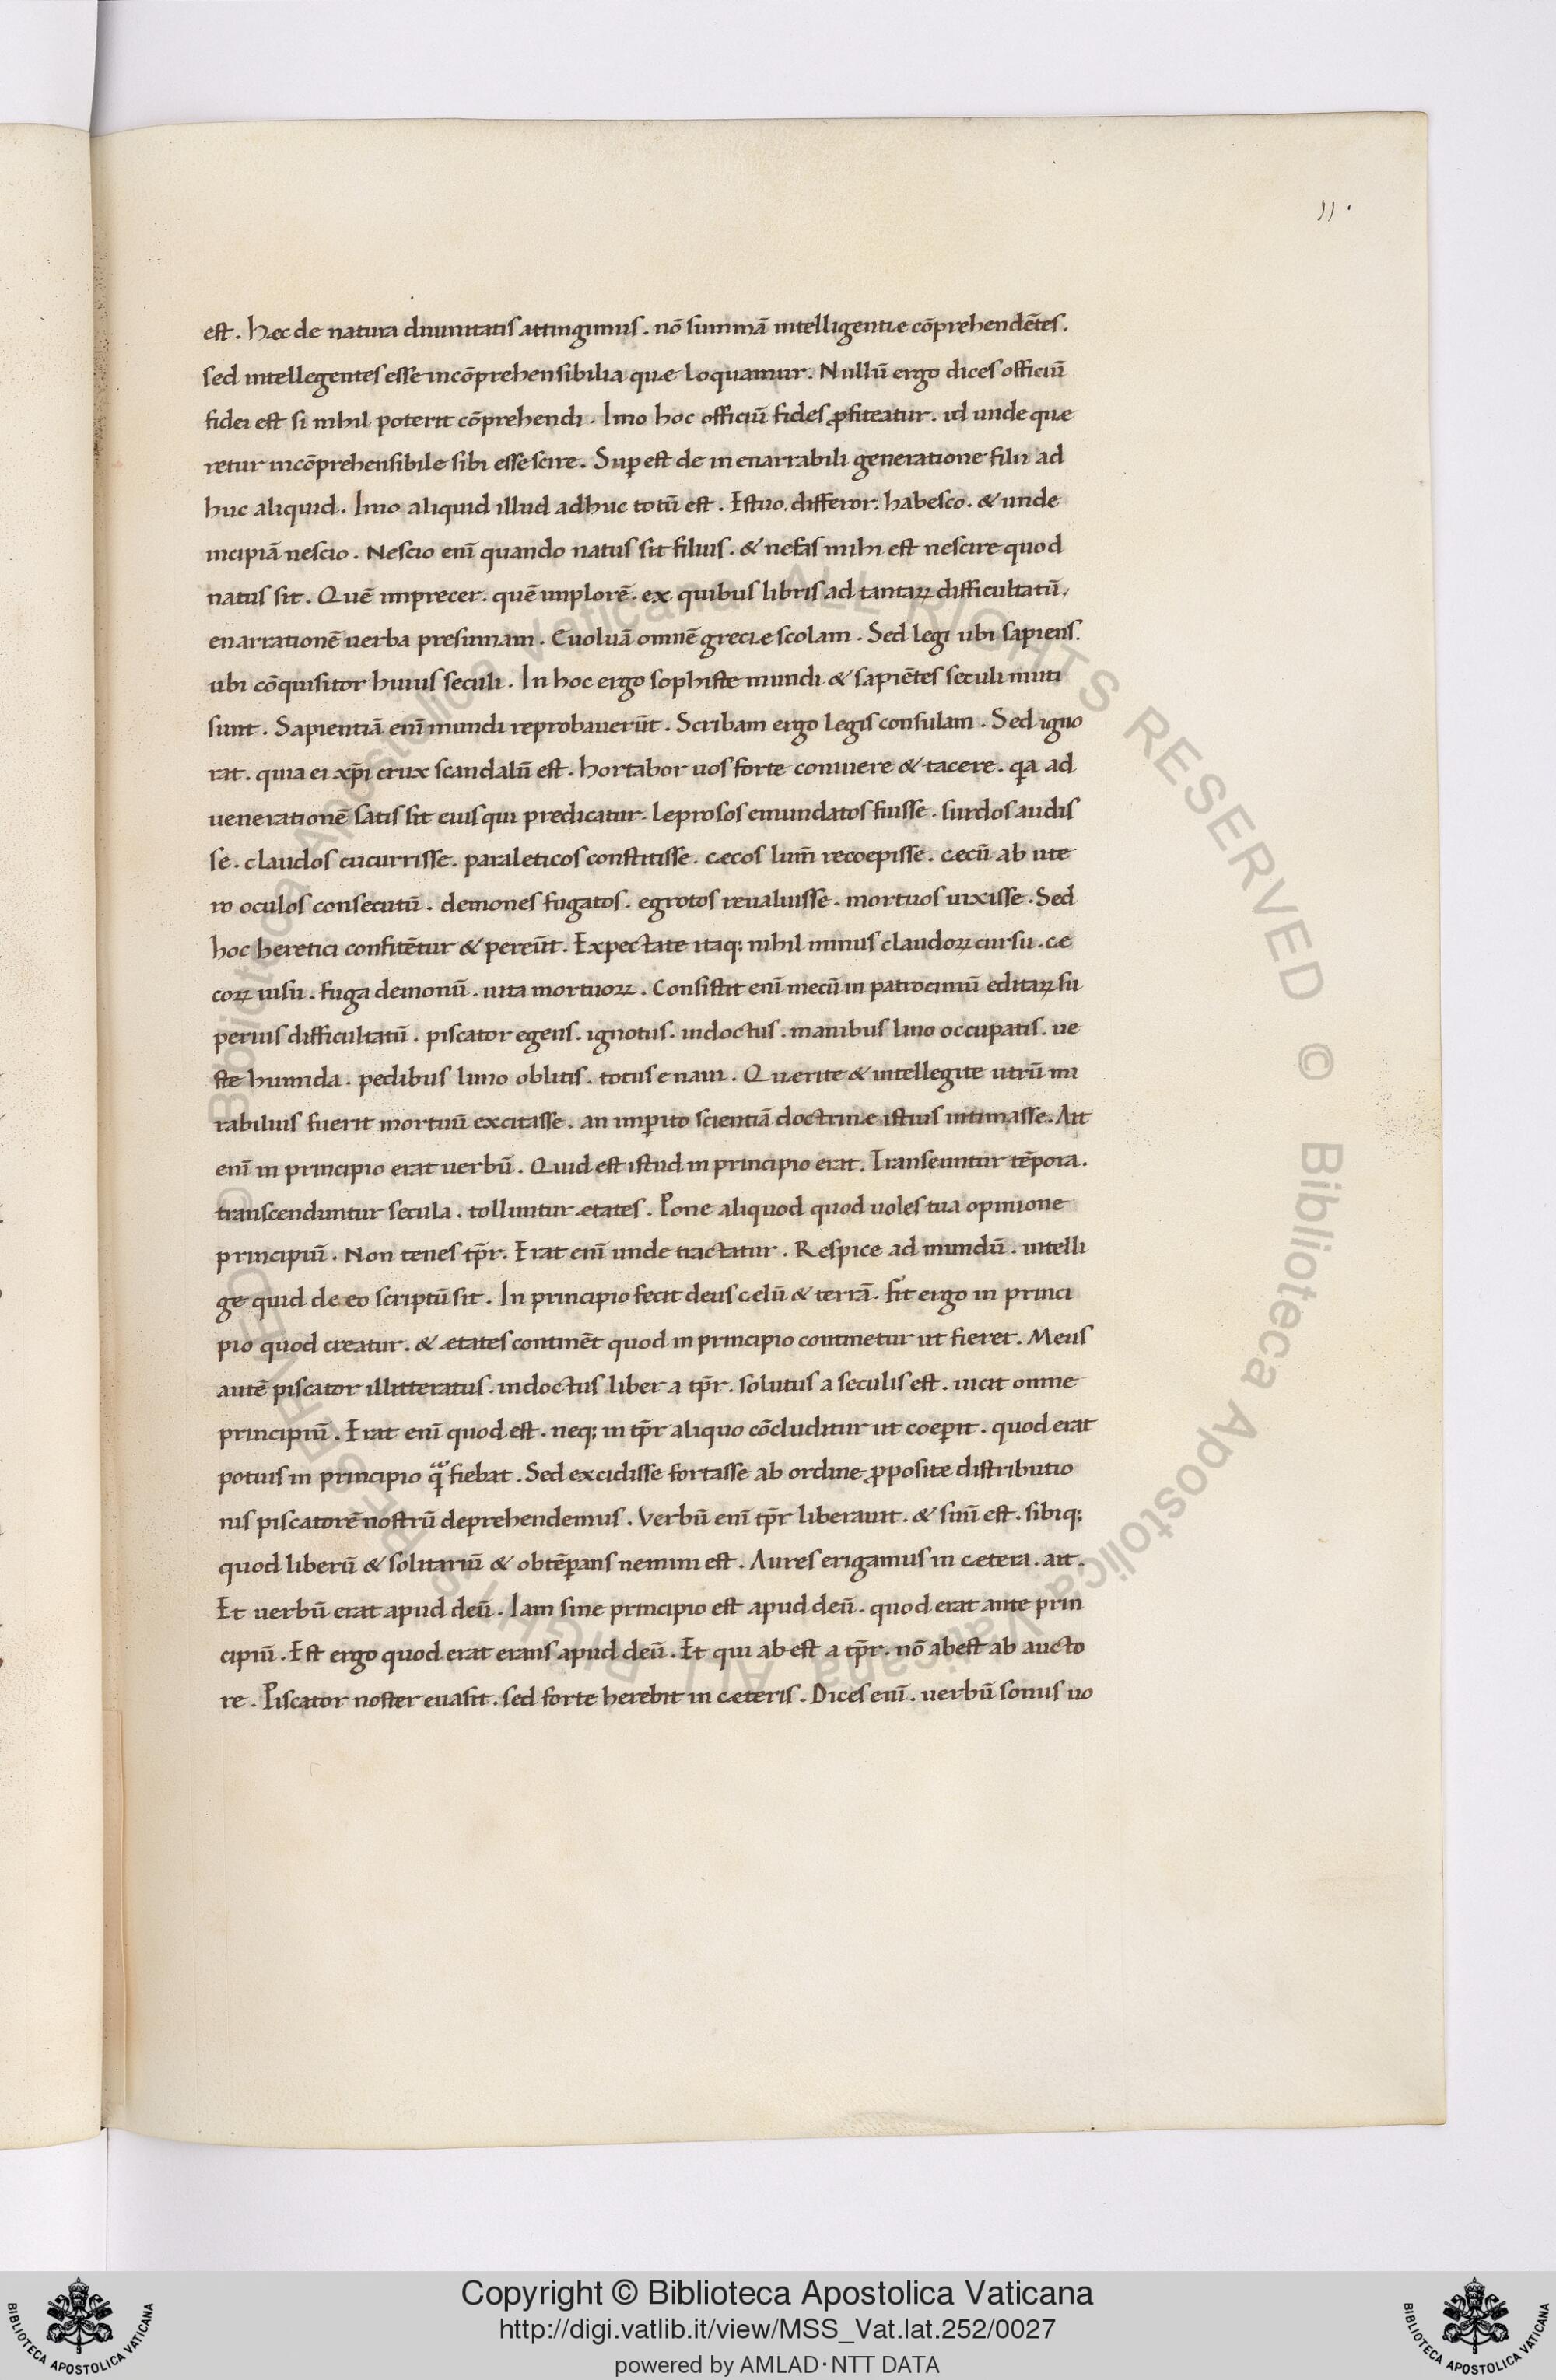 11.
est. hæc de natura diuinitatis attingimus. nō summā intelligentiæ cōprehendētes.
sed intellegentes esse incōprehensibilia quæ loquamur. Nullū ergo dices officiū
fidei est si nihil poterit cōprehendi. Imo hoc officiū fides ꝓfiteatur. id unde quæ
retur incōprehensibile sibi esse scire. Suꝑ est de inenarrabili generatione filii ad
huc aliquid. Imo aliquid illud adhuc totū est. Estuo. differor. habesco. & unde
incipiā nescio. Nescio enī quando natus sit filius. & nefas mihi est nescire quod
natus sit. Quē imprecer. quē implorē. ex quibus libris ad tantaꝝ difficultatū.
enarrationē uerba presumam. Euoluā omnē greciæ scolam. Sed legi ubi sapiens.
ubi cōquisitor huius seculi. In hoc ergo sophiste mundi & sapiētes seculi muti
sunt. Sapientiā enī mundi reprobauerūt. Scribam ergo legis consulam. Sed igno
rat. quia ei xp̄i crux scandalū est. hortabor uos forte coniuere & tacere. qa ad
uenerationē satis sit eius qui predicatur. leprosos emundatos fuisse. surdos audis
se. claudos cucurrisse. paraleticos constitisse. cæcos lum̄ recoepisse. cæcū ab ute
ro oculos consecutū. demones fugatos. egrotos reualuisse. mortuos uixisse. Sed
hoc heretici confitētur & pereūt. Expectate itaq; nihil minus claudoꝝ cursu. cæ
coꝝ uisu. fuga demoniū. uita mortuoꝝ. Consistit enī mecū in patrociniū editaꝝ su
perius difficultatū. piscator egens. ignotus. indoctus. manibus lino occupatis. ue
ste humida. pedibus limo oblitis. totus e naui. Quærite & intellegite utrū mi
rabilius fuerit mortuū excitasse. an imꝑito scientiā doctrinæ istius intimasse. Ait
enī in principio erat uerbū. Quid est istud in principio erat. Transeuntur tēpora.
transcenduntur secula. tolluntur ætates. Pone aliquod quod uoles tua opinione
principiū. Non tenes tp̄r. Erat enī unde tractatur. Respice ad mundū. intelli
ge quid de eo scriptū sit. In principio fecit deus cælū & terrā. fit ergo in princi
pio quod creatur. & ætates continēt quod in principio continetur ut fieret. Meus
autē piscator illitteratus. indoctus liber a tp̄r. solutus a seculis est. uicit omne
principiū. Erat enī quod est. neq; in tp̄r aliquo cōcluditur ut coeꝑit. quod erat
potius in principio q̄ fiebat. Sed excidisse fortasse ab ordine ꝓposite distributio
nis piscatorē nostrū deprehendemus. Verbū enī tp̄r liberauit. & suū est. sibiq;
quod liberū & solitariū & obtēꝑans nemini est. Aures erigamus in cætera. ait.
Et uerbū erat apud deū. Iam sine principio est apud deū. quod erat ante prin
cipiū. Est ergo quod erat erans apud deū. Et qui abest a tp̄r. nō abest ab aucto
re. Piscator noster euasit. sed forte herebit in cæteris. Dices enī. uerbū sonus uo
Biblioteca Apostolica Vaticana ALL RIGHTS RESERVED © Biblioteca Apostolica Vaticana ALL RIGHTS RESERVED ©
Copyright © Biblioteca Apostolica Vaticana
http://digi.vatlib.it/view/MSS_Vat.lat.252/0027
powered by AMLAD·NTT DATA
BIBLIOTECA APOSTOLICA VATICANA
BIBLIOTECA APOSTOLICA VATICANA